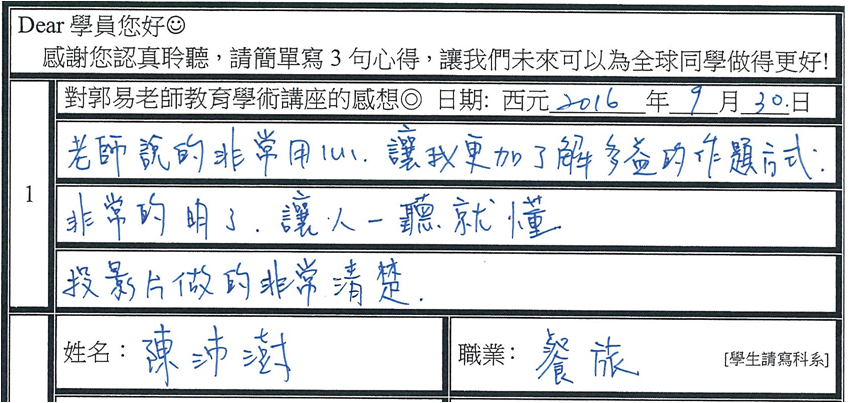 Dear 學員您好☺
感謝您認真聆聽，請簡單寫 3 句心得，讓我們未來可以為全球同學做得更好!
對郭易老師教育學術講座的感想◎ 日期: 西元 2016 年 9 月 30.日
1
老師說的非常用心. 讓我更加了解多益的作題方式.
非常的明了. 讓人一聽就懂
投影片做的非常清楚.
姓名：陳沛澍 職業： 餐旅 [學生請寫科系]